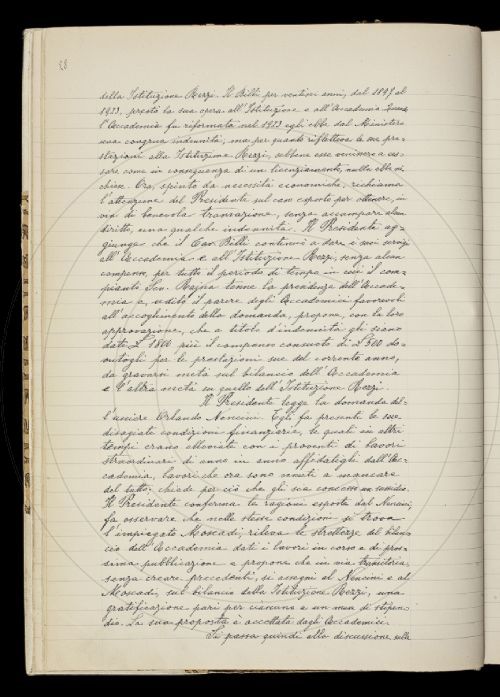 28
della Istituzione Rezzi. Il Billi per ventisei anni, dal 1897 al
1923, prestò la sua opera all'Istituzione e all'Accademia. Quando
l'Accademia fu riformata nel 1923 egli ebbe dal Ministero
una congrua indennità, ma per quanto riflettera le sue pre-
stazioni alla Istituzione Rezzi, sebbene esse venissero a ces-
sare come in conseguenza di un licenziamento, nulla ebbe nè
chiese. Ora, spinto da necessità economiche, richiama
l'attenzione del Presidente sul caso esposto per ottenere, in
via di benevola transazione, senza accampare alcun
diritto, una qualche indennità. Il Presidente ag-
giunge che il Cav. Billi continuò a dare i suoi servigi
all'Accademia e all'Istituzione Rezzi, senza alcun
compenso, per tutto il periodo di tempo in cui il com-
pianto Sen. Rajna tenne la presidenza dell'Accade-
mia e, udito il parere degli Accademici favorevoli
all'accoglimento della domanda, propone, con la loro
approvazione, che a titolo d'indennità gli siano
date £ 1800 più il compenso consueto di £ 500 do-
vutogli per le prestazioni sue del corrente anno,
da gravarsi metà sul bilancio dell'Accademia
e l'altra metà su quello dell'Istituzione Rezzi.
Il Presidente legge la domanda del-
l'usciere Orlando Nencini. Egli fa presenti le sue
disagiate condizioni finanziarie, le quali in altri
tempi erano alleviate con i proventi di lavori
straordinari di anno in anno affidatigli dall'Ac-
cademia, lavori che ora sono venuti a mancare
del tutto: chiede perciò che gli sia concesso un sussidio.
Il Presidente conferma le ragioni esposte dal Nencini,
fa osservare che nelle stesse condizioni si trova
l'impiegato Moscadi, rileva le strettezze del bilan-
cio dell'Accademia dati i lavori in corso e di pros-
sima pubblicazione e propone che in via transitoria,
senza creare precedenti, si assegni al Nencini e al
Moscadi, sul bilancio della Istituzione Rezzi, una
gratificazione pari per ciascuno a un mese di stipen-
dio. La sua proposta è accettata dagli Accademici.
Si passa quindi alla discussione sulla